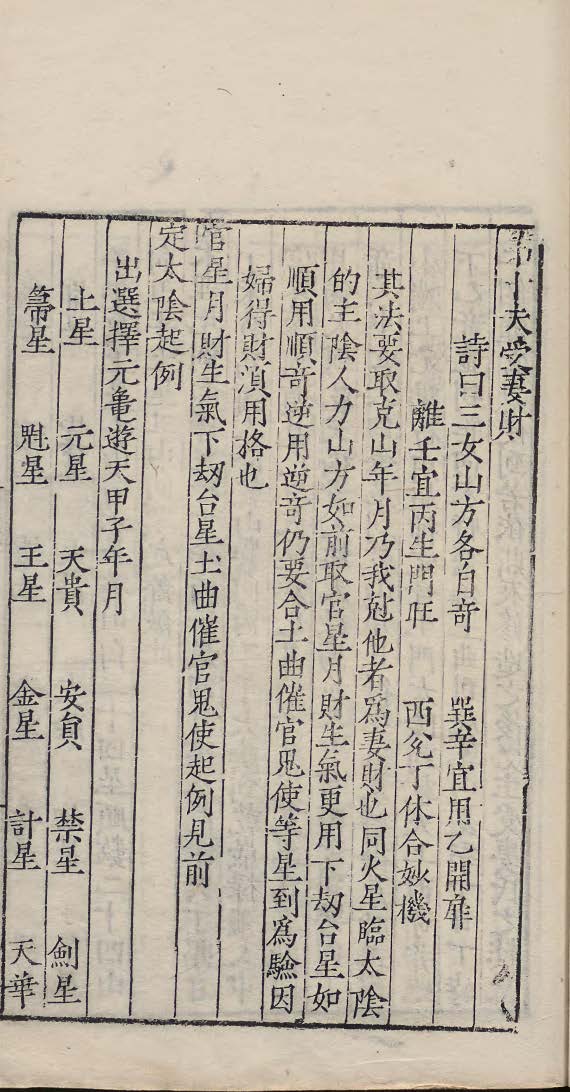 第十天受妻財
詩曰三女山方各白奇　巽辛宜用乙開扉
離壬宜丙生門旺　酉兊丁休合妙機
其法要取克山年月乃我尅他者爲妻財也同火星臨太陰
的主陰人力山方如前取官星月財生氣更用下刼台星如
順用順竒逆用逆竒仍要合土曲催官鬼使等星到爲驗因
婦得財湏用格也
官星月財生氣下刼台星土曲催官鬼使起例見前
定太陰起例
出選擇元龜遊天甲子年月
土星　元星　天貴　安貟　禁星　劍星
箒星　魁星　王星　金星　計星　天華